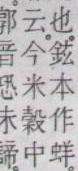 也。鉉本作蛘
云。今米穀中
郭音恐未諦。